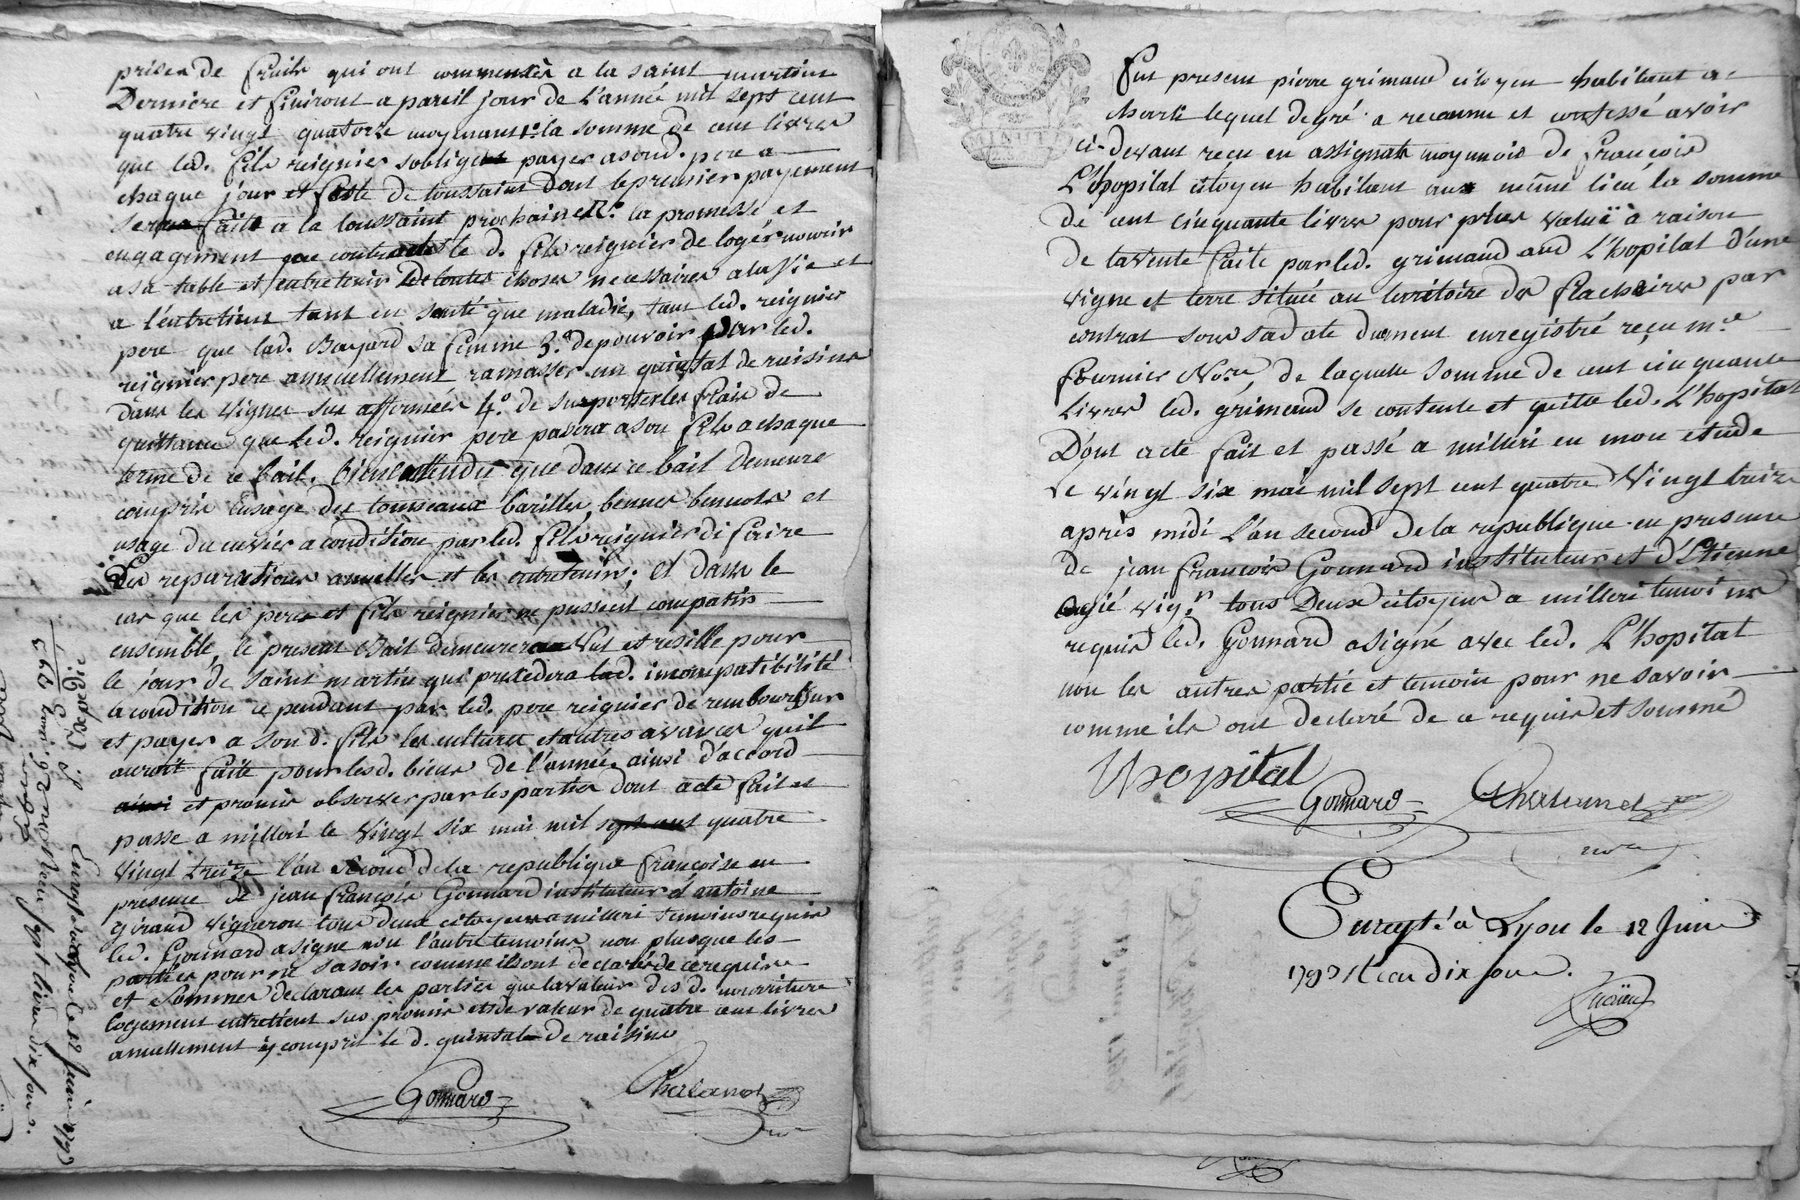 prises de fruits qui ont commencés a la saint martin
Derniere et finiront a pareil jour de l'année mil sept cent
quatre vingt quatorze moyenant 1.° la somme de cent livres
que led. fils reignier soblige payer a sond. pere a
chaque jour et feste de toussaint dont le premier payement
sera fait a la toussaint prochaine 2.° la promesse et
engagement que contracte le d. fils reignier de loger nourrir
a sa table et entretenir de toutes choses necessaires a la vie et
a l'entretient tant en santé que maladie, tant led. reignier
pere que lad. Bajard sa femme 3.° de pouvoir par led.
reignier pere annuellement ramasser un quintal de raisins
dans les vignes sus affermées 4.° de suporter les frais de
quittance que led. reignier pere passera a son fils a chaque
terme de ce bail. bien entendu que dans ce bail demeure
compris l'usage des tonneaux barilles, bennes bennots et
usage du cuvier a condition par led. fils reignier di faire
Les reparations annuelles et les entretenir; et dans le
cas que les pere et fils reignier ne pussent compatir
ensemble, le present Bail demeurera Nul et resillé pour
le jour de saint martin qui precedera lad. incompatibilité
a condition ce pendant par led. pere reignier de rembourser
et payer a son d. fils les cultures et autres avances quil
auroit faite pour lesd. biens de l'année ainsi d'accord
et promis observer par les parties dont acte fait et
passé a milleri le vingt six mai mil sept cent quatre
vingt treize l'an second de la republique françoise en
presence de jean françois Gonnard instituteur et antoine
giraud vigneron tous deux citoyens a milleri temoins requis
led. Gonnard a signé non l'autre temoins non plus que les
parties pour ne savoir comme ils ont declarés de ce requis
et sommes declarant les parties que la valeur des d. nourriture
logement entretient sus promis est de valeur de quatre cent livres
annuellement y compris le d. quintal de raisins
Gonnard
Enregtré à Lyon le 12 Juin 1793
sept livres dix sous.
Fut present pierre grimaud citoyen habitant a
charli lequel de gré a reconnu et confessé avoir
ci-devant recu en assignats moynoié de françois
L'hopital citoyen habitant aux même lieu la somme
de cent cinquante livres pour prix valuë à raison
de la vente faite par led. grimaud aud L'hopital d'une
vigne et terre située au territoire des flacheires par
contrat sous sa date duement enregistré reçu m.e
fournier No.re, de laquelle somme de cent cinquante
Livres led. grimaud se contente et quitte led. L'hopital
Dont acte fait et passé a milleri en mon étude
Le vingt six mai mil sept cent quatre Vingt treize
après midi L'an second de la republique en presence
de jean françois Gonnard instituteur et d'Etienne
vig.n tous Deux citoyens a milleri temoins
requis led. Gonnard a signé avec led. L'hopital
non les autres partie et temoin pour ne savoir
comme ils ont declaré de ce requis et sommé
Lhopital
Gonnard
no.re
Enregté à Lyon le 12 Juin
1793 Reçu dix sous.